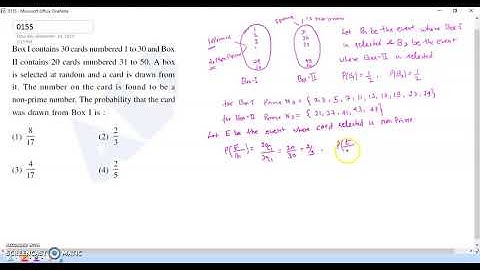 0155 - Microsoft Office OneNote
0155
Box I contains 30 cards numbered 1 to 30 and Box
II contains 20 cards numbered 31 to 50. A box
is selected at random and a card is drawn from
it. The number on the card is found to be a
non-prime number. The probability that the card
was drawn from Box I is :
(1) 8/17 (2) 2/3
(3) 4/17 (4) 2/5
Box-I
Box-II
Let B₁ be the event where Box-I
is selected & B₂ be the event
where Box-II is selected
P(B₁) = 1/2, P(B₂) = 1/2
for Box-I Prime No s = { 2, 3, 5, 7, 11, 13, 17, 19, 23, 29}
for Box-II Prime No s = { 31, 37, 41, 43, 47}
Let E be the event where card selected is non Prime
= 20/30 = 2/3 ,
RECORDED WITH
SCREENCAST MATIC